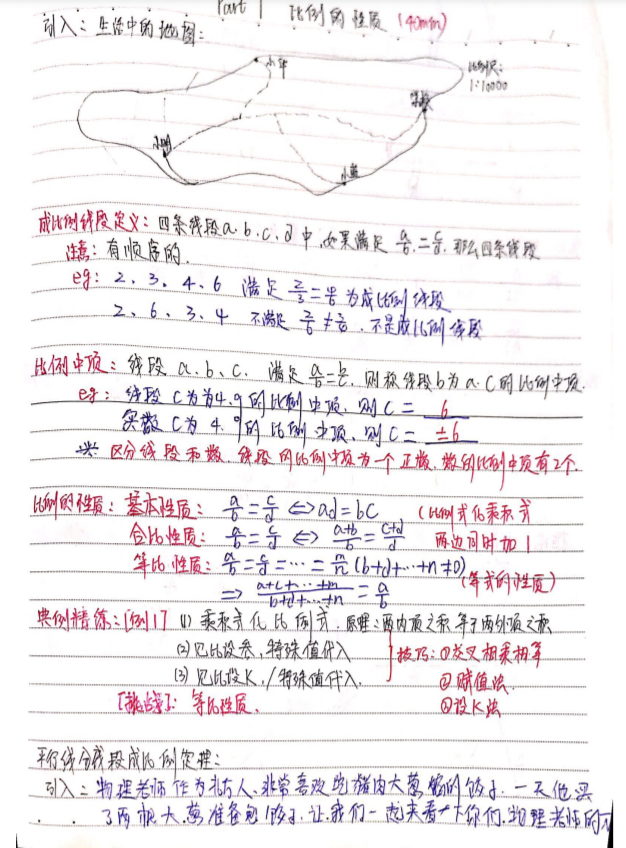 Part 1 比例的性质 (40min)
引入：生活中的地图：
小华
比例尺：
1:10000
学校
小明
小鱼
成比例线段定义：四条线段a.b.c.d中,如果满足 a/b = c/d, 那么四条线段
注意：有顺序的.
eg：2、3、4、6 满足 2/3=4/6 为成比例线段
2、6、3、4 不满足 2/6≠3/4 . 不是成比例线段
比例中项：线段 a.b.c. 满足 a/b=b/c. 则称线段b为a.c的比例中项.
eg：线段 C为为4.9的比例中项, 则C= 6
实数 C为 4.9的 比例中项, 则C= ±6
※ 区分线段和数. 线段的比例中项为一个正数. 数的比例中项有2个.
比例的性质：基本性质： a/b=c/d ⇔ ad=bc (比例式化乘积式
合比性质： a/b=c/d ⇔ a+b/b=c+d/d 两边同时加1
等比性质： a/b=c/d=…=m/n (b+d+…+n≠0)
⇒ a+c+…+m/b+d+…+n=a/b (等式的性质)
典例精练：[例1] (1) 乘积式化比例式. 原理：两内项之积等于两外项之积
(2) 见比设参, 特殊值代入 技巧：①交叉相乘相等
(3) 见比设K./特殊值代入. ②赋值法.
[挑战]：等比性质. ③设K法
平行线分线段成比例定理：
引入：物理老师作为北方人.非常喜欢吃猪肉大葱馅的饺子. 一天他买
了两根大葱准备包饺子. 让我们一起来看一下你们.物理老师的